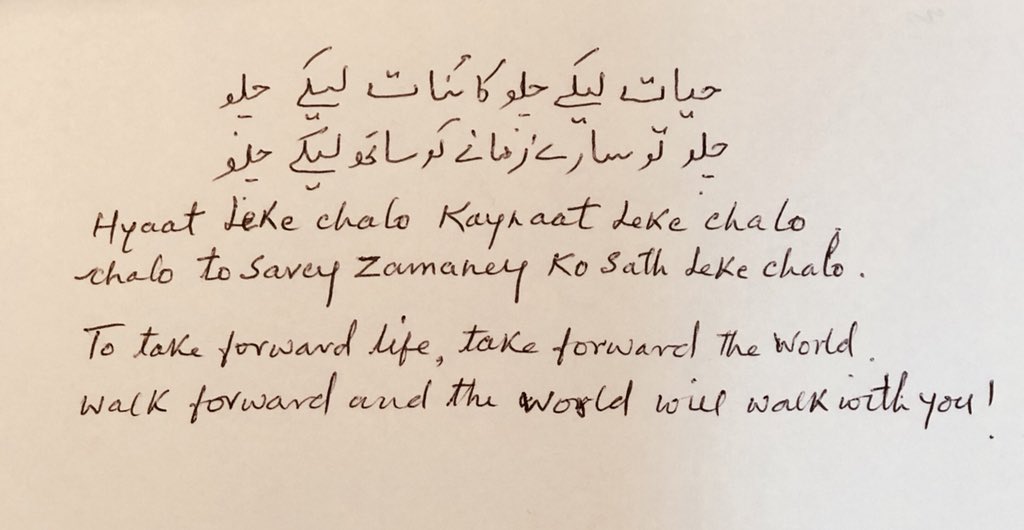 حیات لیکے چلو کائنات لیکے چلو
چلو تو سارے زمانے کو ساتھ لیکے چلو
Hyaat Leke chalo Kaynaat Leke chalo.
chalo to Sarey Zamaney Ko Sath Leke chalo.
To take forward life, take forward the world.
walk forward and the world will walk with you!